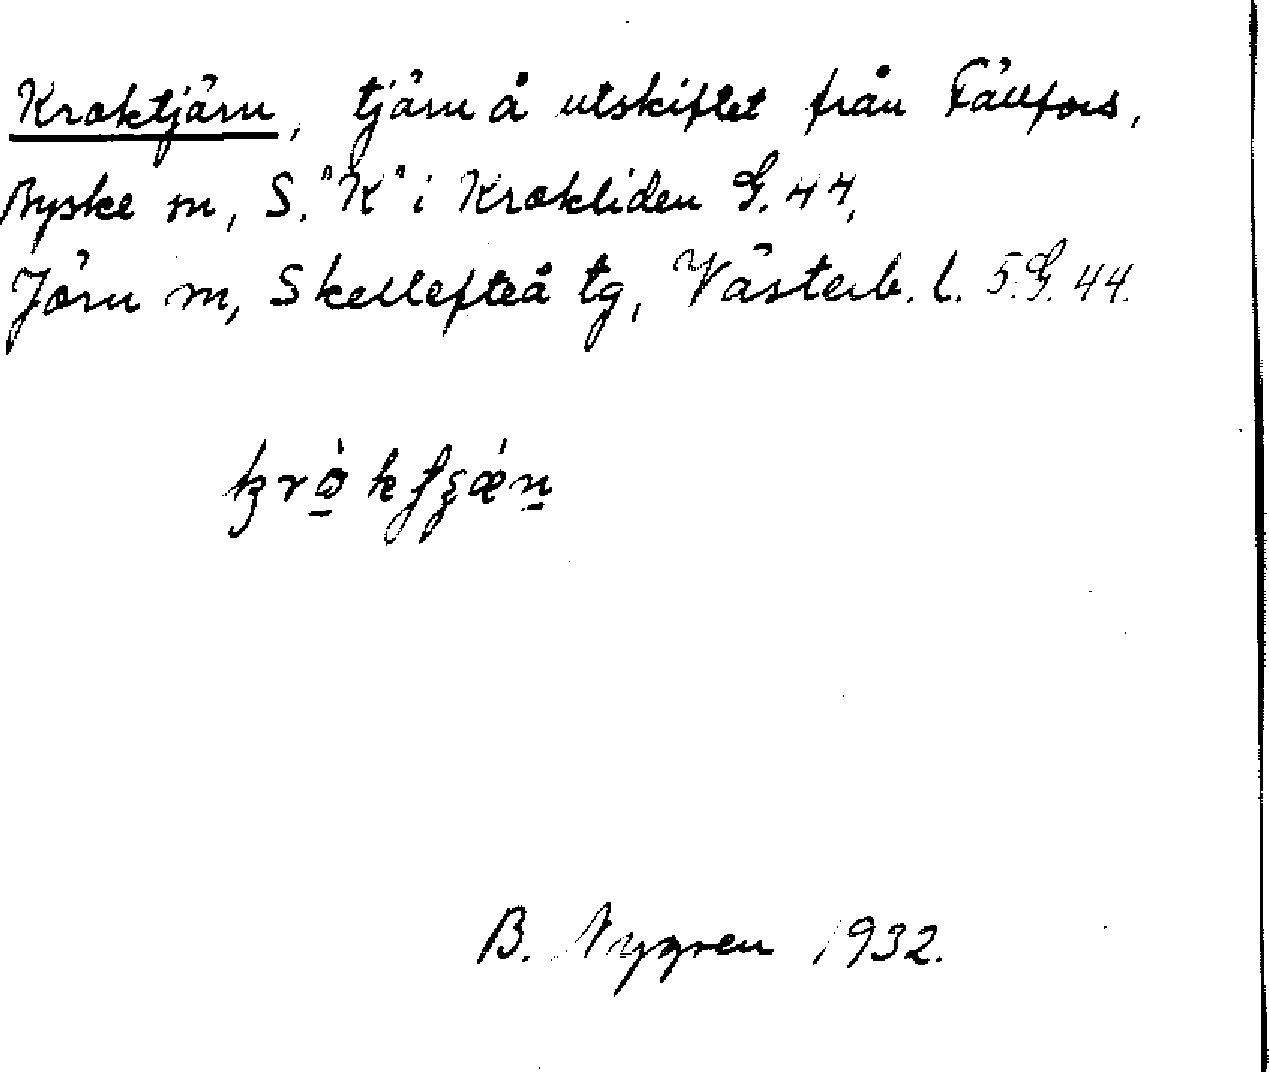 Kroktjärn, tjärn å utskiftet från Fällfors,
Byske sn, S. "K" i Krokliden G. 44,
Jörn sn, Skellefteå tg, Västerb. l. 5.G. 44.
B. Nygren 1932.